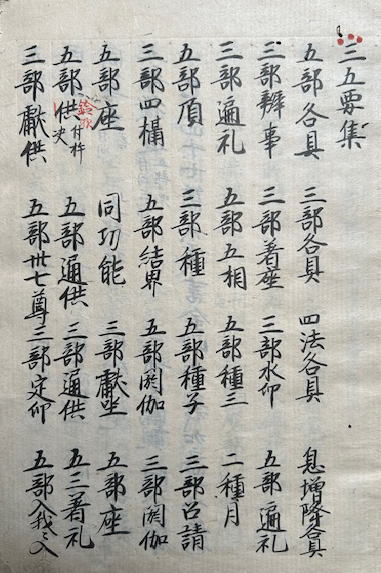 三五要集
五部各具 三部各具 四法各具 息増降各具
三部辨事 三部着座 三部水卯 五部遍礼
三部遍礼 五部五相 五部種三 二種月
五部頂 三部種 五部種子 三部召請
三部四橛 五部結界 五部閼伽 三部閼伽
五部座 同功能 三部獻座 五部座
五部供 五部通供 三部通供 五三着礼
三部獻供 五部卅七尊 三部定卯 五部入我々入